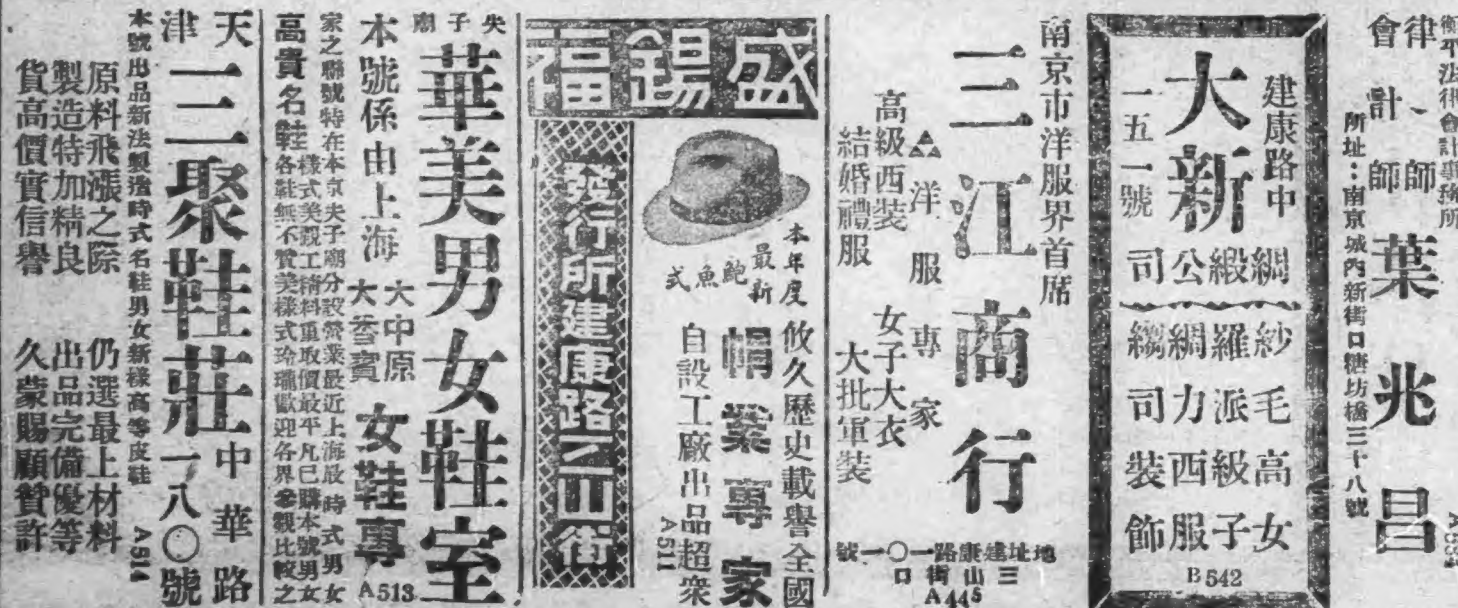 衡平法律會計事務所
律、師
會計師
葉兆昌
所址：南京城內新街口糖坊橋三十八號
建康路中
大新
一五一號
綢緞公司
紗羅綢縐
毛派力司
高級西裝
女子服飾
B542
南京市洋服界首席
三江商行
洋服專家
高級西裝
結婚禮服
女子大衣
大批軍裝
地址建康路一〇一號
三山街口
A445
盛錫福
本年度
最新
鮑魚式
攸久歷史載譽全國
帽業專家
自設工廠出品超衆
A511
發行所建康路三山街
夫子廟
華美男女鞋室
本號係由上海
大中原
大香賓
女鞋專
家之聯號特在本京夫子廟分設營業最近上海最時式男女
高貴名鞋
樣式美觀工精料重取價最平凡已購本號男女
各鞋無不贊美樣式玲瓏歡迎各界參觀比較之
A513
天津
三聚鞋莊
中華路
一八〇號
本號出品新法製造時式名鞋男女新樣高等皮鞋
A514
原料飛漲之際 仍選最上材料
製造特加精良 出品完備優等
貨高價實信譽 久蒙賜顧贊許